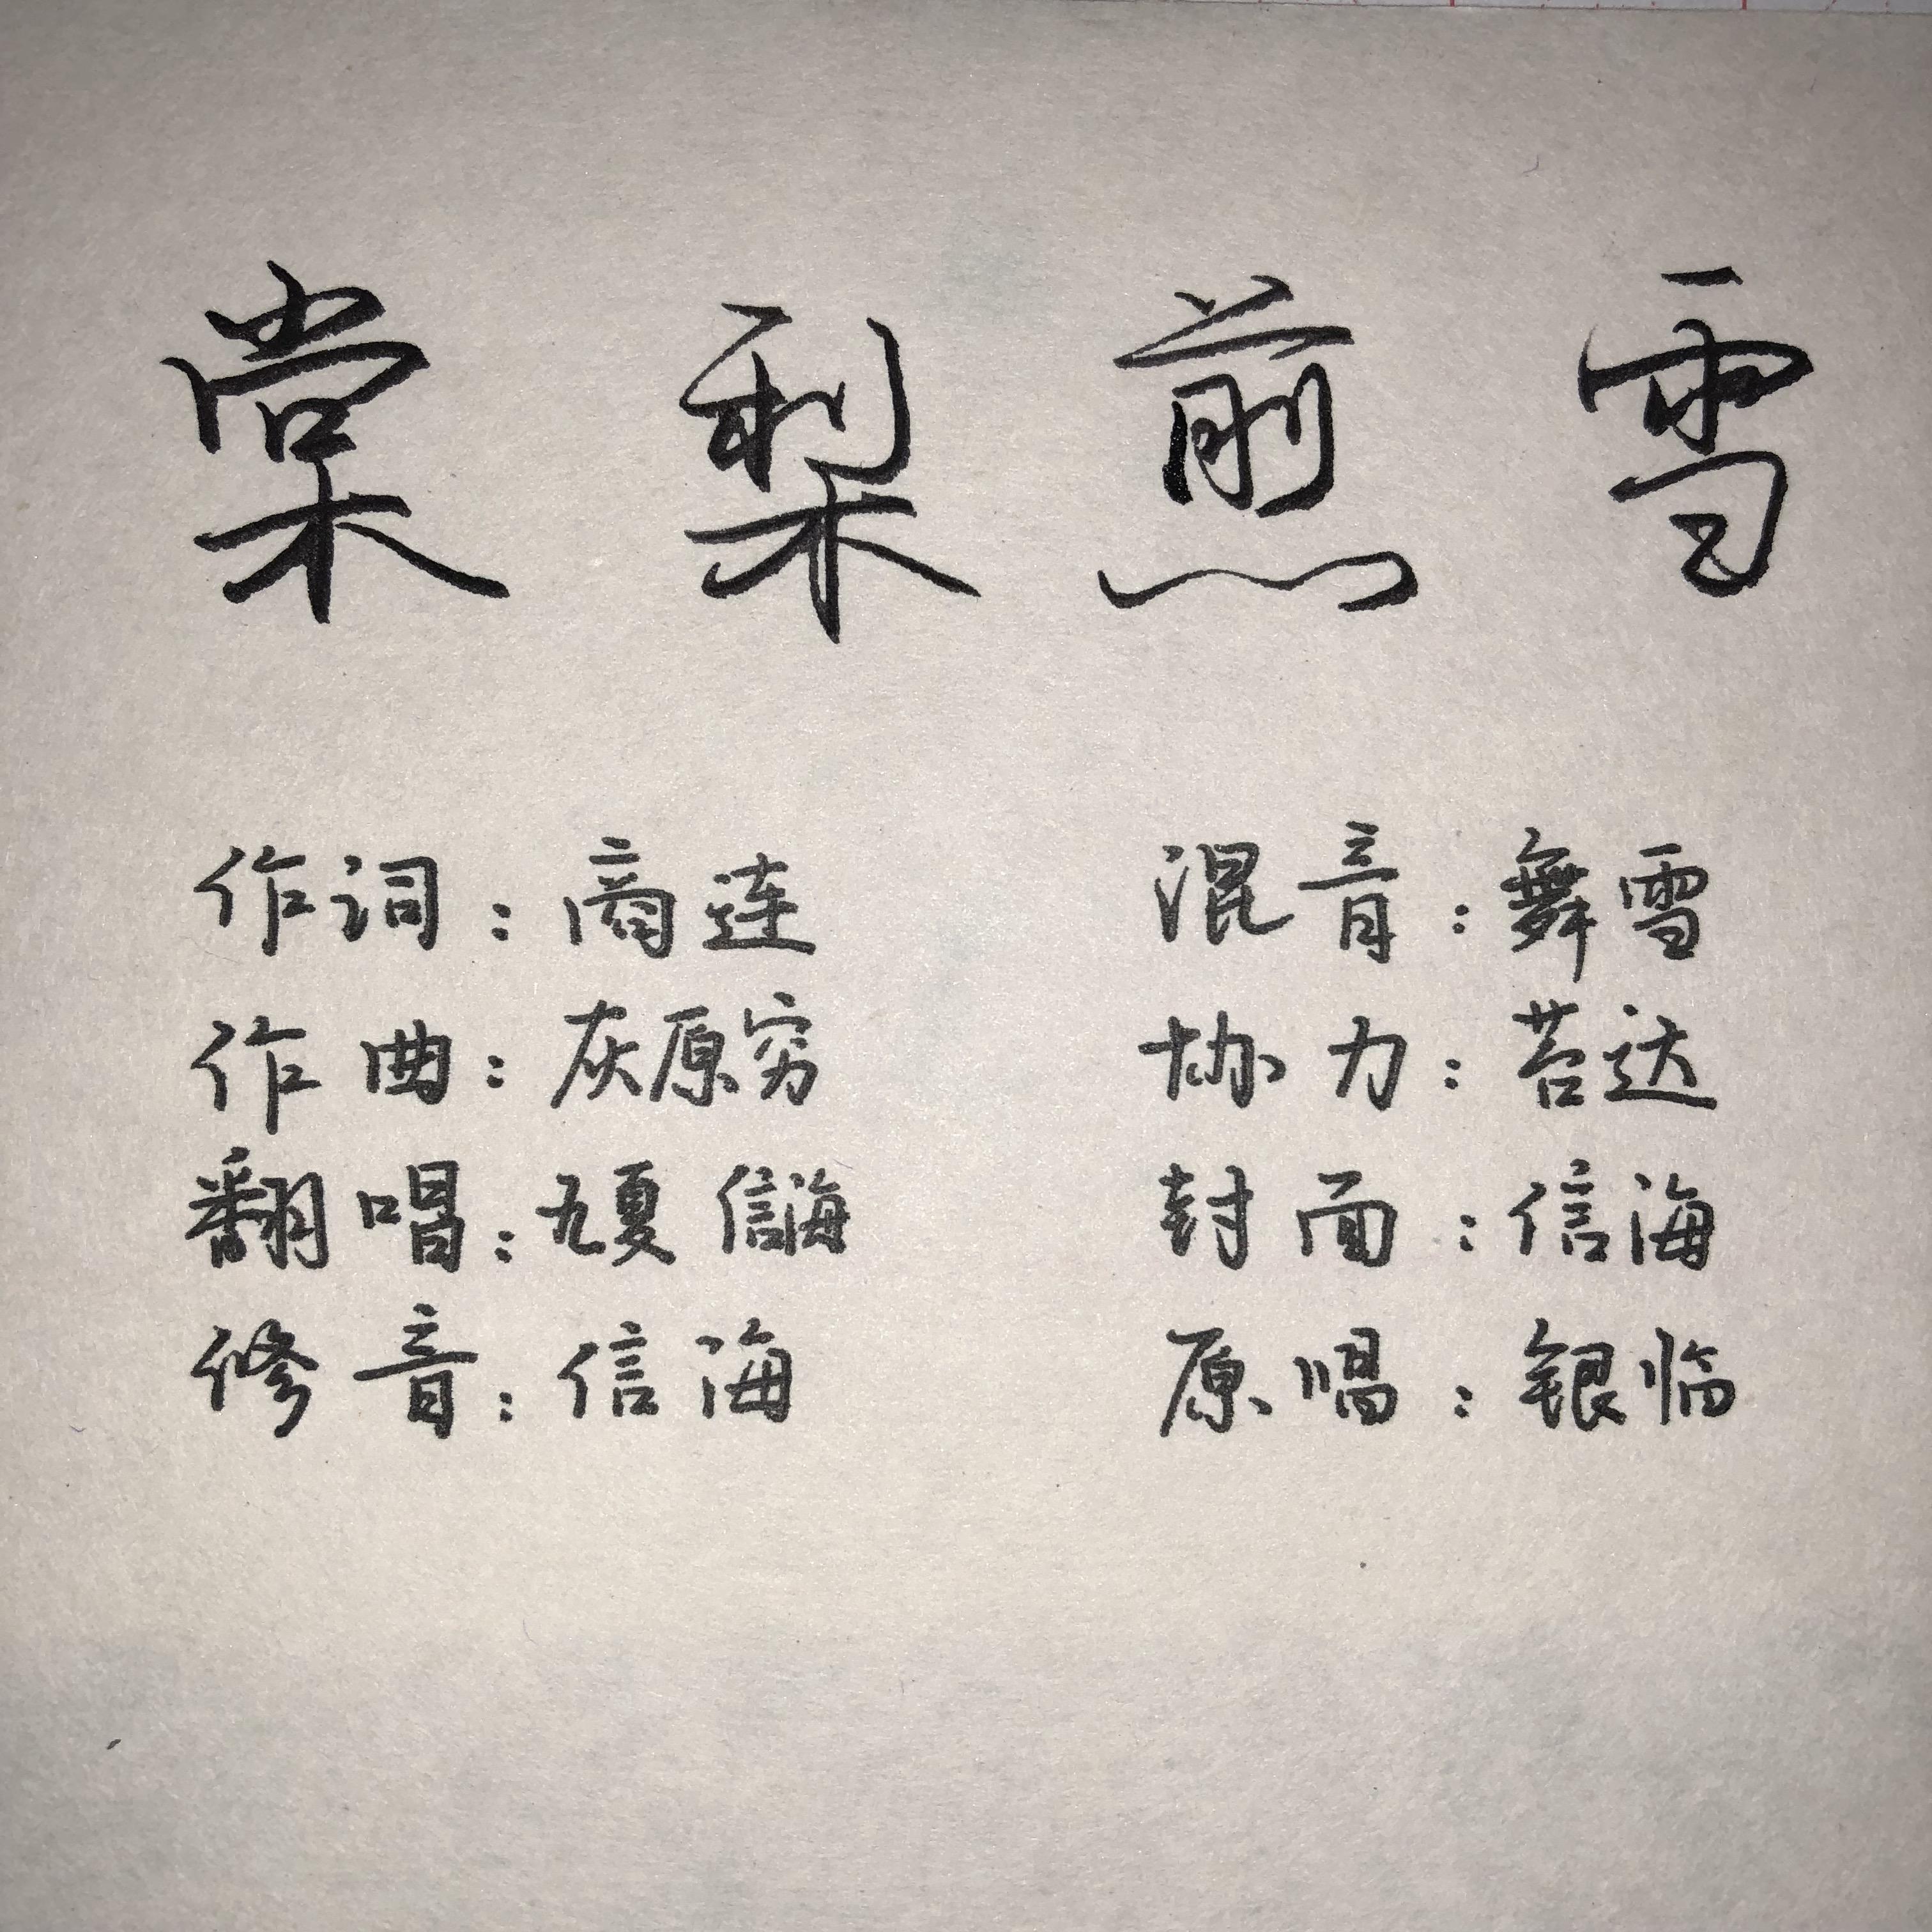 棠梨煎雪
作词：商连
作曲：灰原穷
翻唱：五夏 信海
修音：信海
混音：舞雪
协力：苔达
封面：信海
原唱：银临